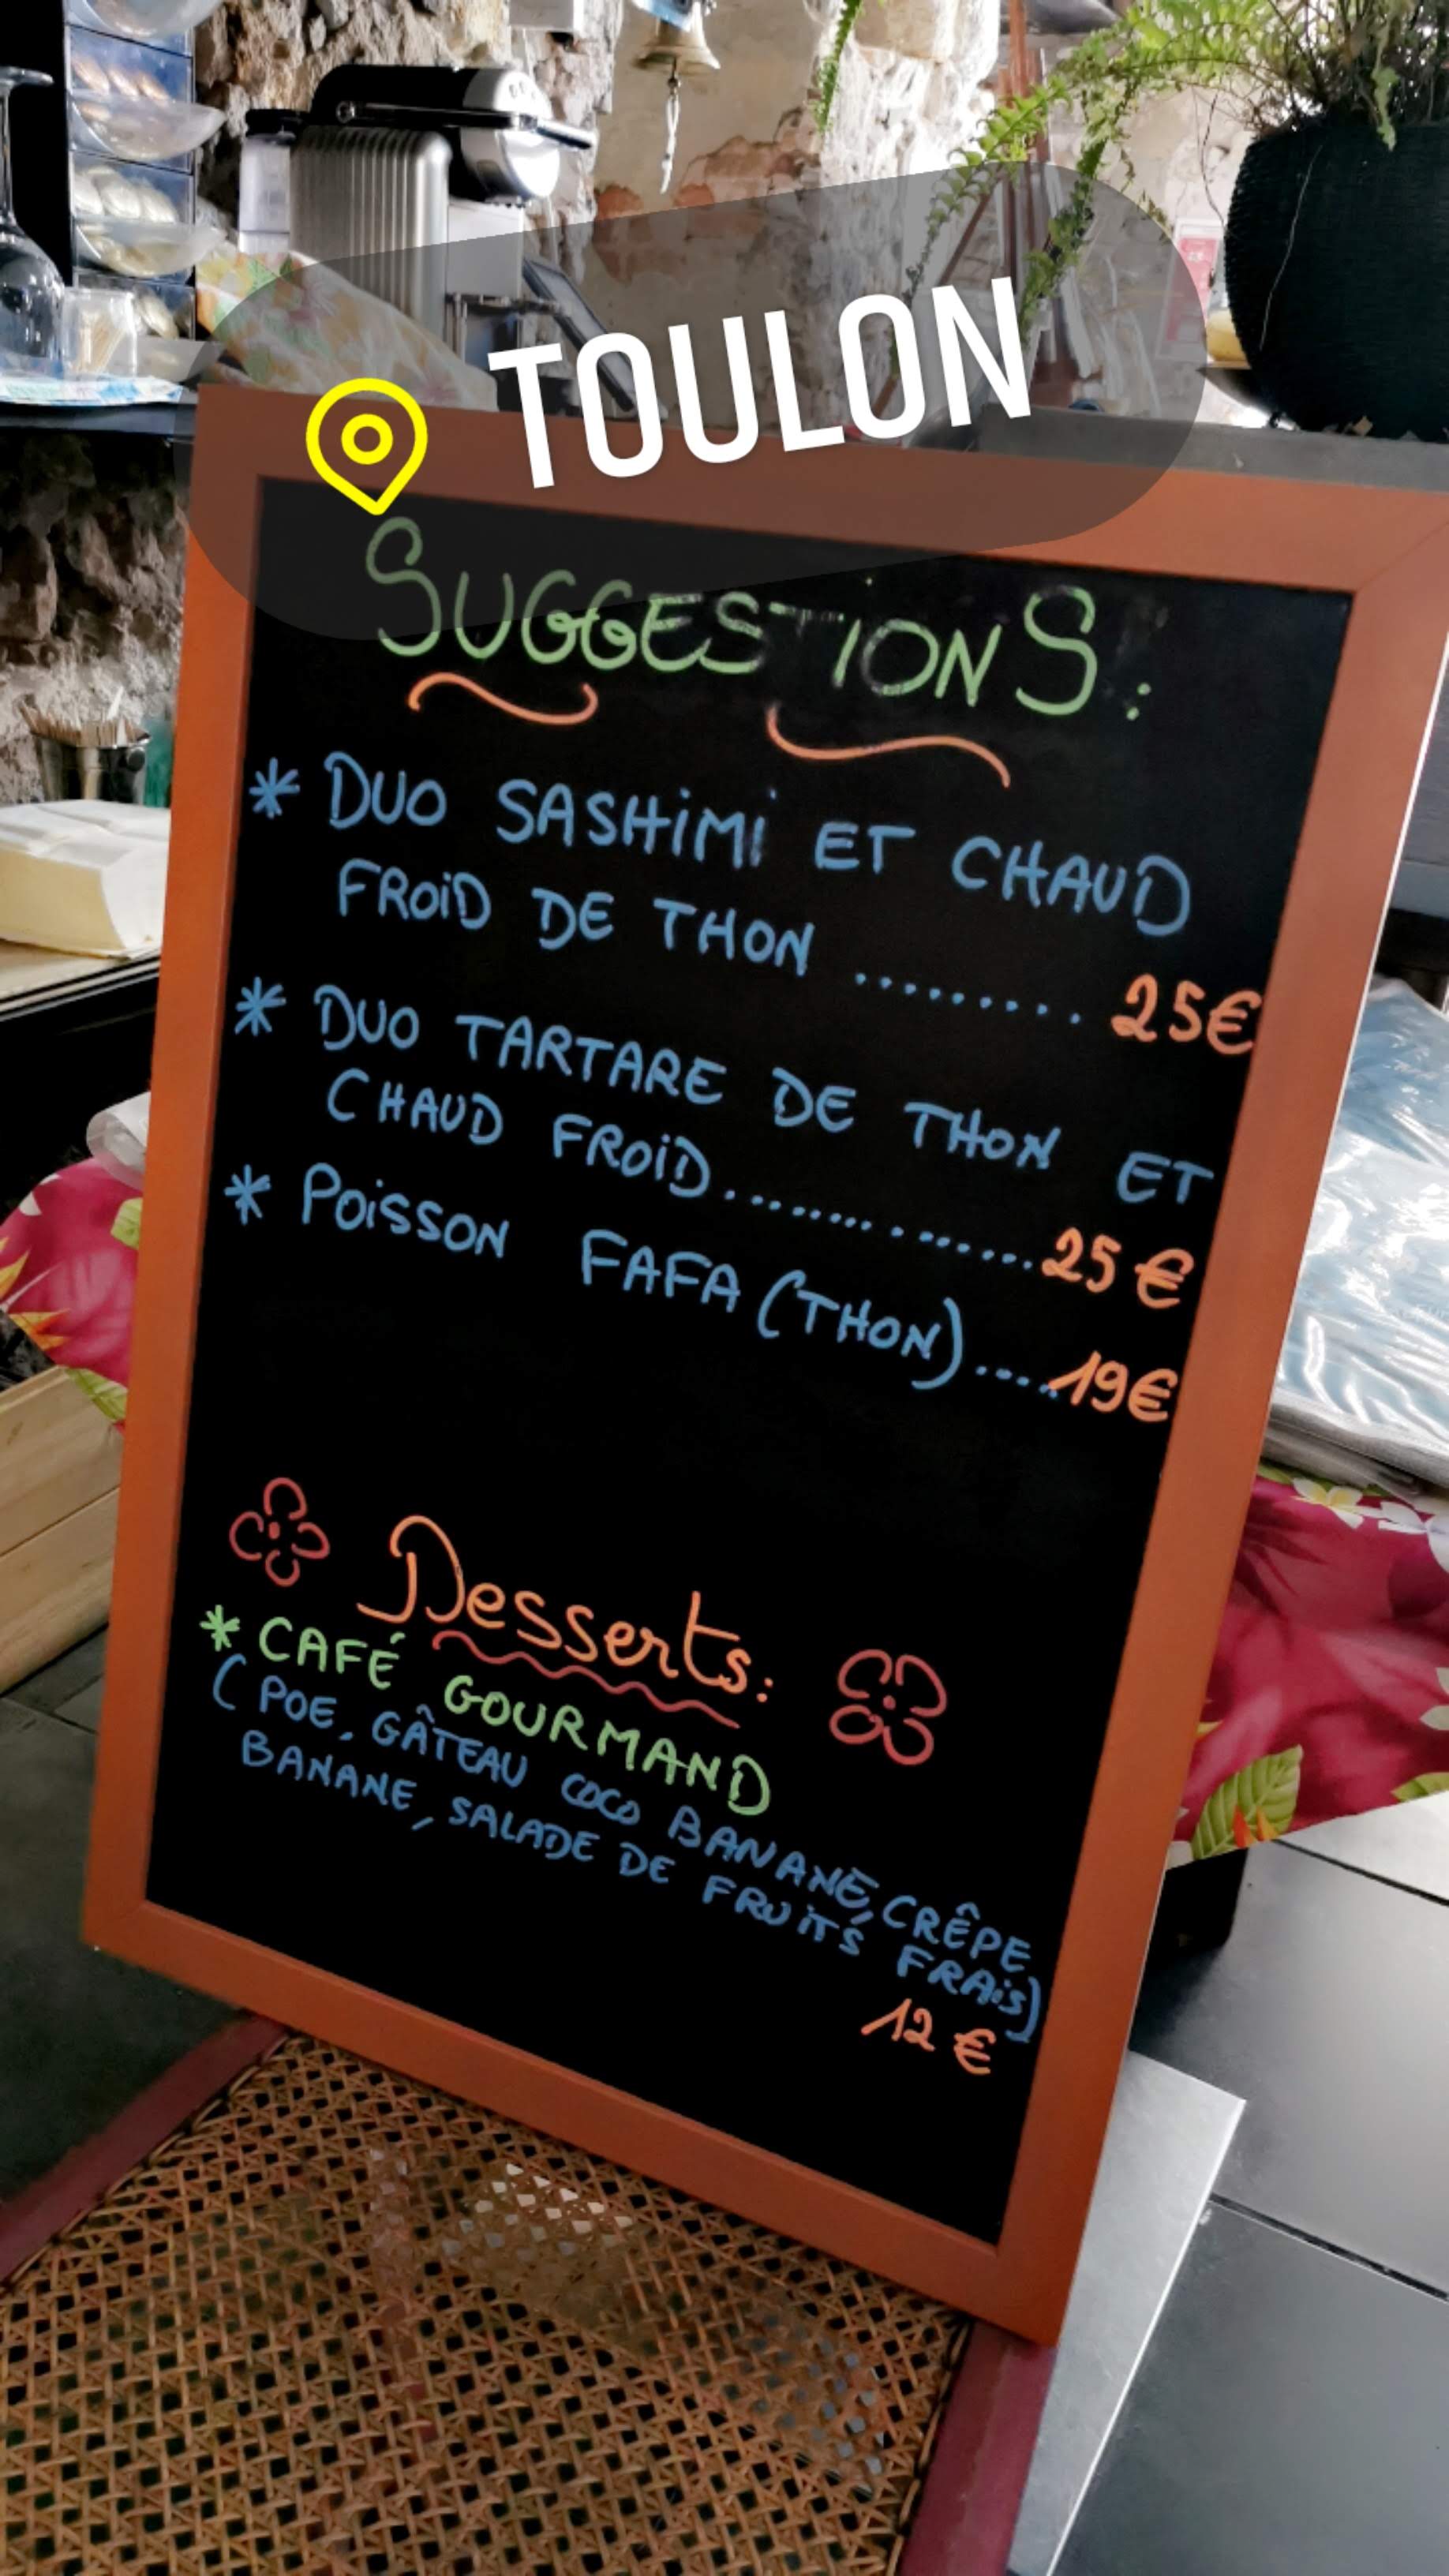 TOULON
SUGGESTIONS:
* DUO SASHIMI ET CHAUD
FROID DE THON ......... 25€
* DUO TARTARE DE THON ET
CHAUD FROID............... 25€
* POISSON FAFA (THON).....19€
Desserts:
* CAFÉ GOURMAND
(POE, GÂTEAU COCO BANANE, CRÊPE
BANANE, SALADE DE FRUITS FRAIS)
12€